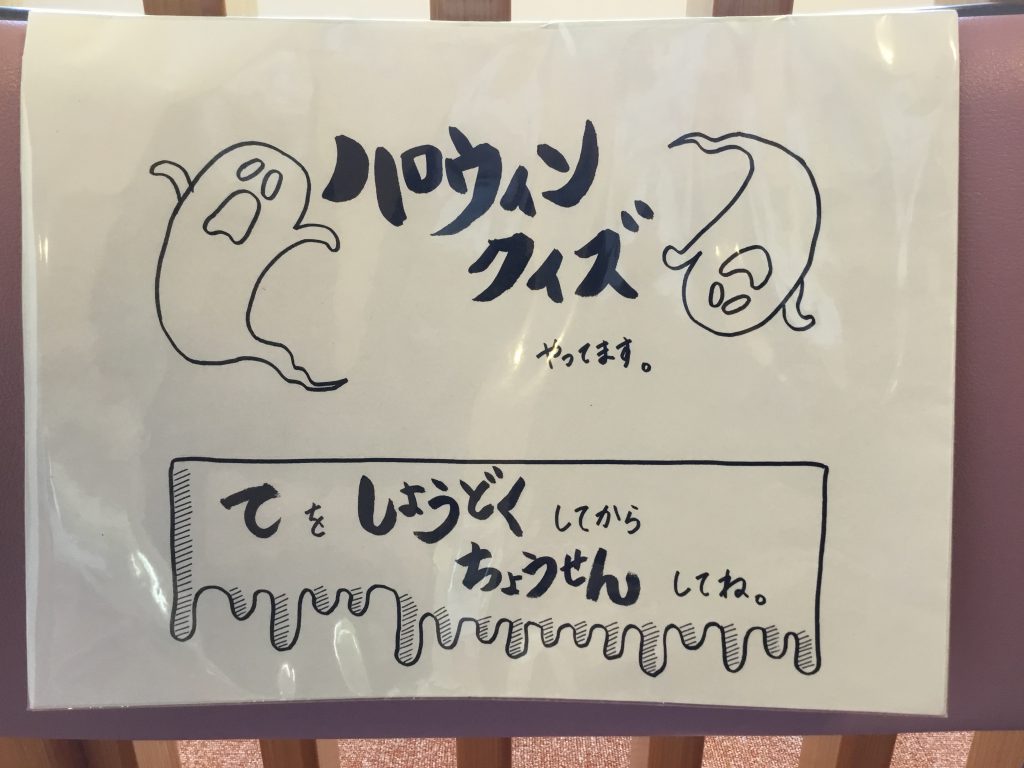 ハロウィン
クイズ
やってます。
てをしょうどくしてから
ちょうせんしてね。